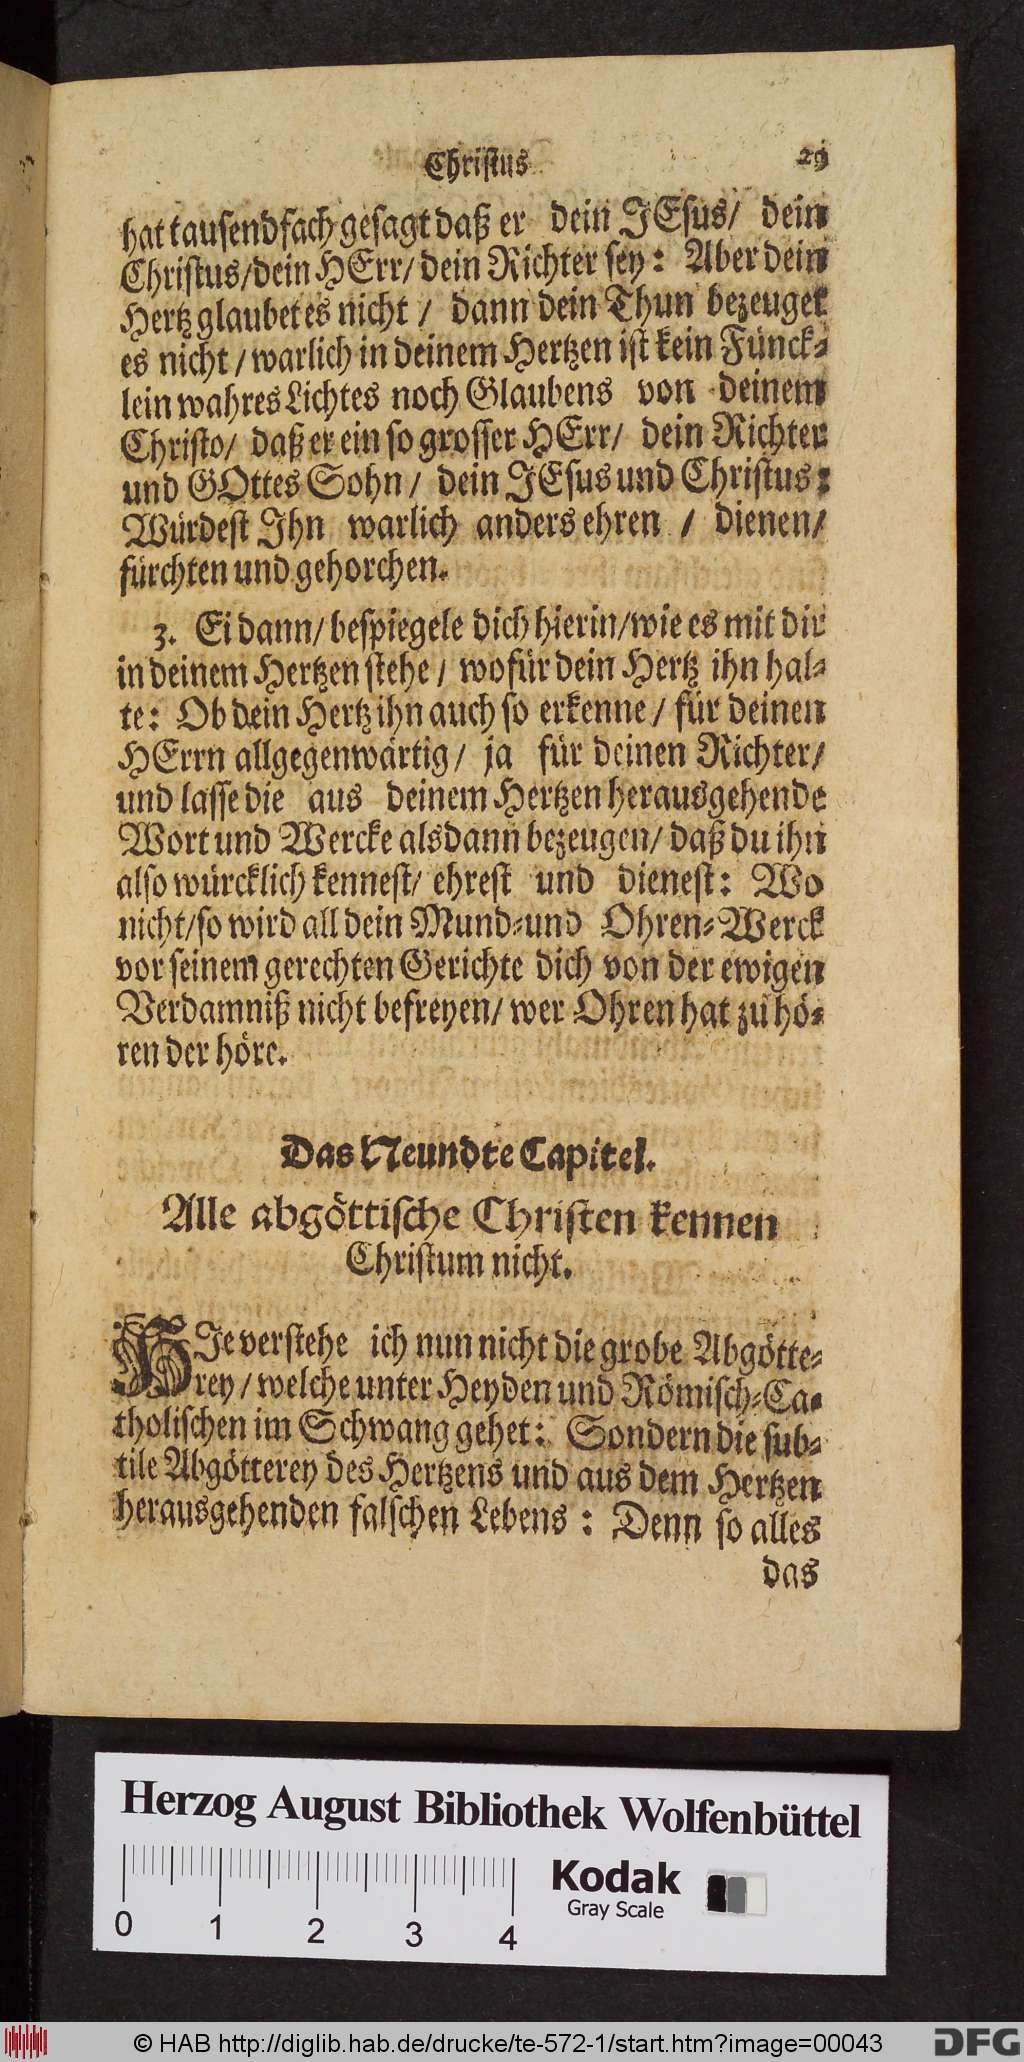 Christus 29
hat tausendfach gesagt daß er dein JEsus/ dein
Christus/dein HErr/ dein Richter sey: Aber dein
Hertz glaubet es nicht / dann dein Thun bezeuget
es nicht / warlich in deinem Hertzen ist kein Fünck-
lein wahres Lichtes noch Glaubens von deinem
Christo/ daß er ein so grosser HErr/ dein Richter
und GOttes Sohn / dein JEsus und Christus:
Würdest Ihn warlich anders ehren / dienen/
fürchten und gehorchen.
3. Ei dann/ bespiegele dich hierin/wie es mit dir
in deinem Hertzen stehe / wofür dein Hertz ihn hal-
te: Ob dein Hertz ihn auch so erkenne / für deinen
HErrn allgegenwärtig/ ja für deinen Richter/
und lasse die aus deinem Hertzen herausgehende
Wort und Wercke alsdann bezeugen/ daß du ihn
also würcklich kennest/ ehrest und dienest: Wo
nicht/so wird all dein Mund-und Ohren-Werck
vor seinem gerechten Gerichte dich von der ewigen
Verdamniß nicht befreyen/ wer Ohren hat zu hö-
ren der höre.
Das Neundte Capitel.
Alle abgöttische Christen kennen
Christum nicht.
HIe verstehe ich nun nicht die grobe Abgötte-
rey / welche unter Heyden und Römisch-Ca-
tholischen im Schwang gehet: Sondern die sub-
tile Abgötterey des Hertzens und aus dem Hertzen
herausgehenden falschen Lebens : Denn so alles
das
Herzog August Bibliothek Wolfenbüttel
Kodak
Gray Scale
0 1 2 3 4
© HAB http://diglib.hab.de/drucke/te-572-1/start.htm?image=00043
DFG